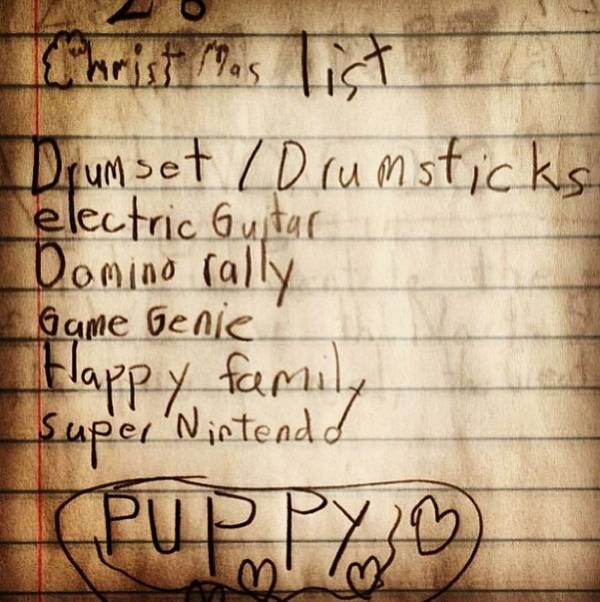 Christmas list
Drumset / Drumsticks
electric Guitar
Domino rally
Game Genie
Happy family
super Nintendo
PUPPY